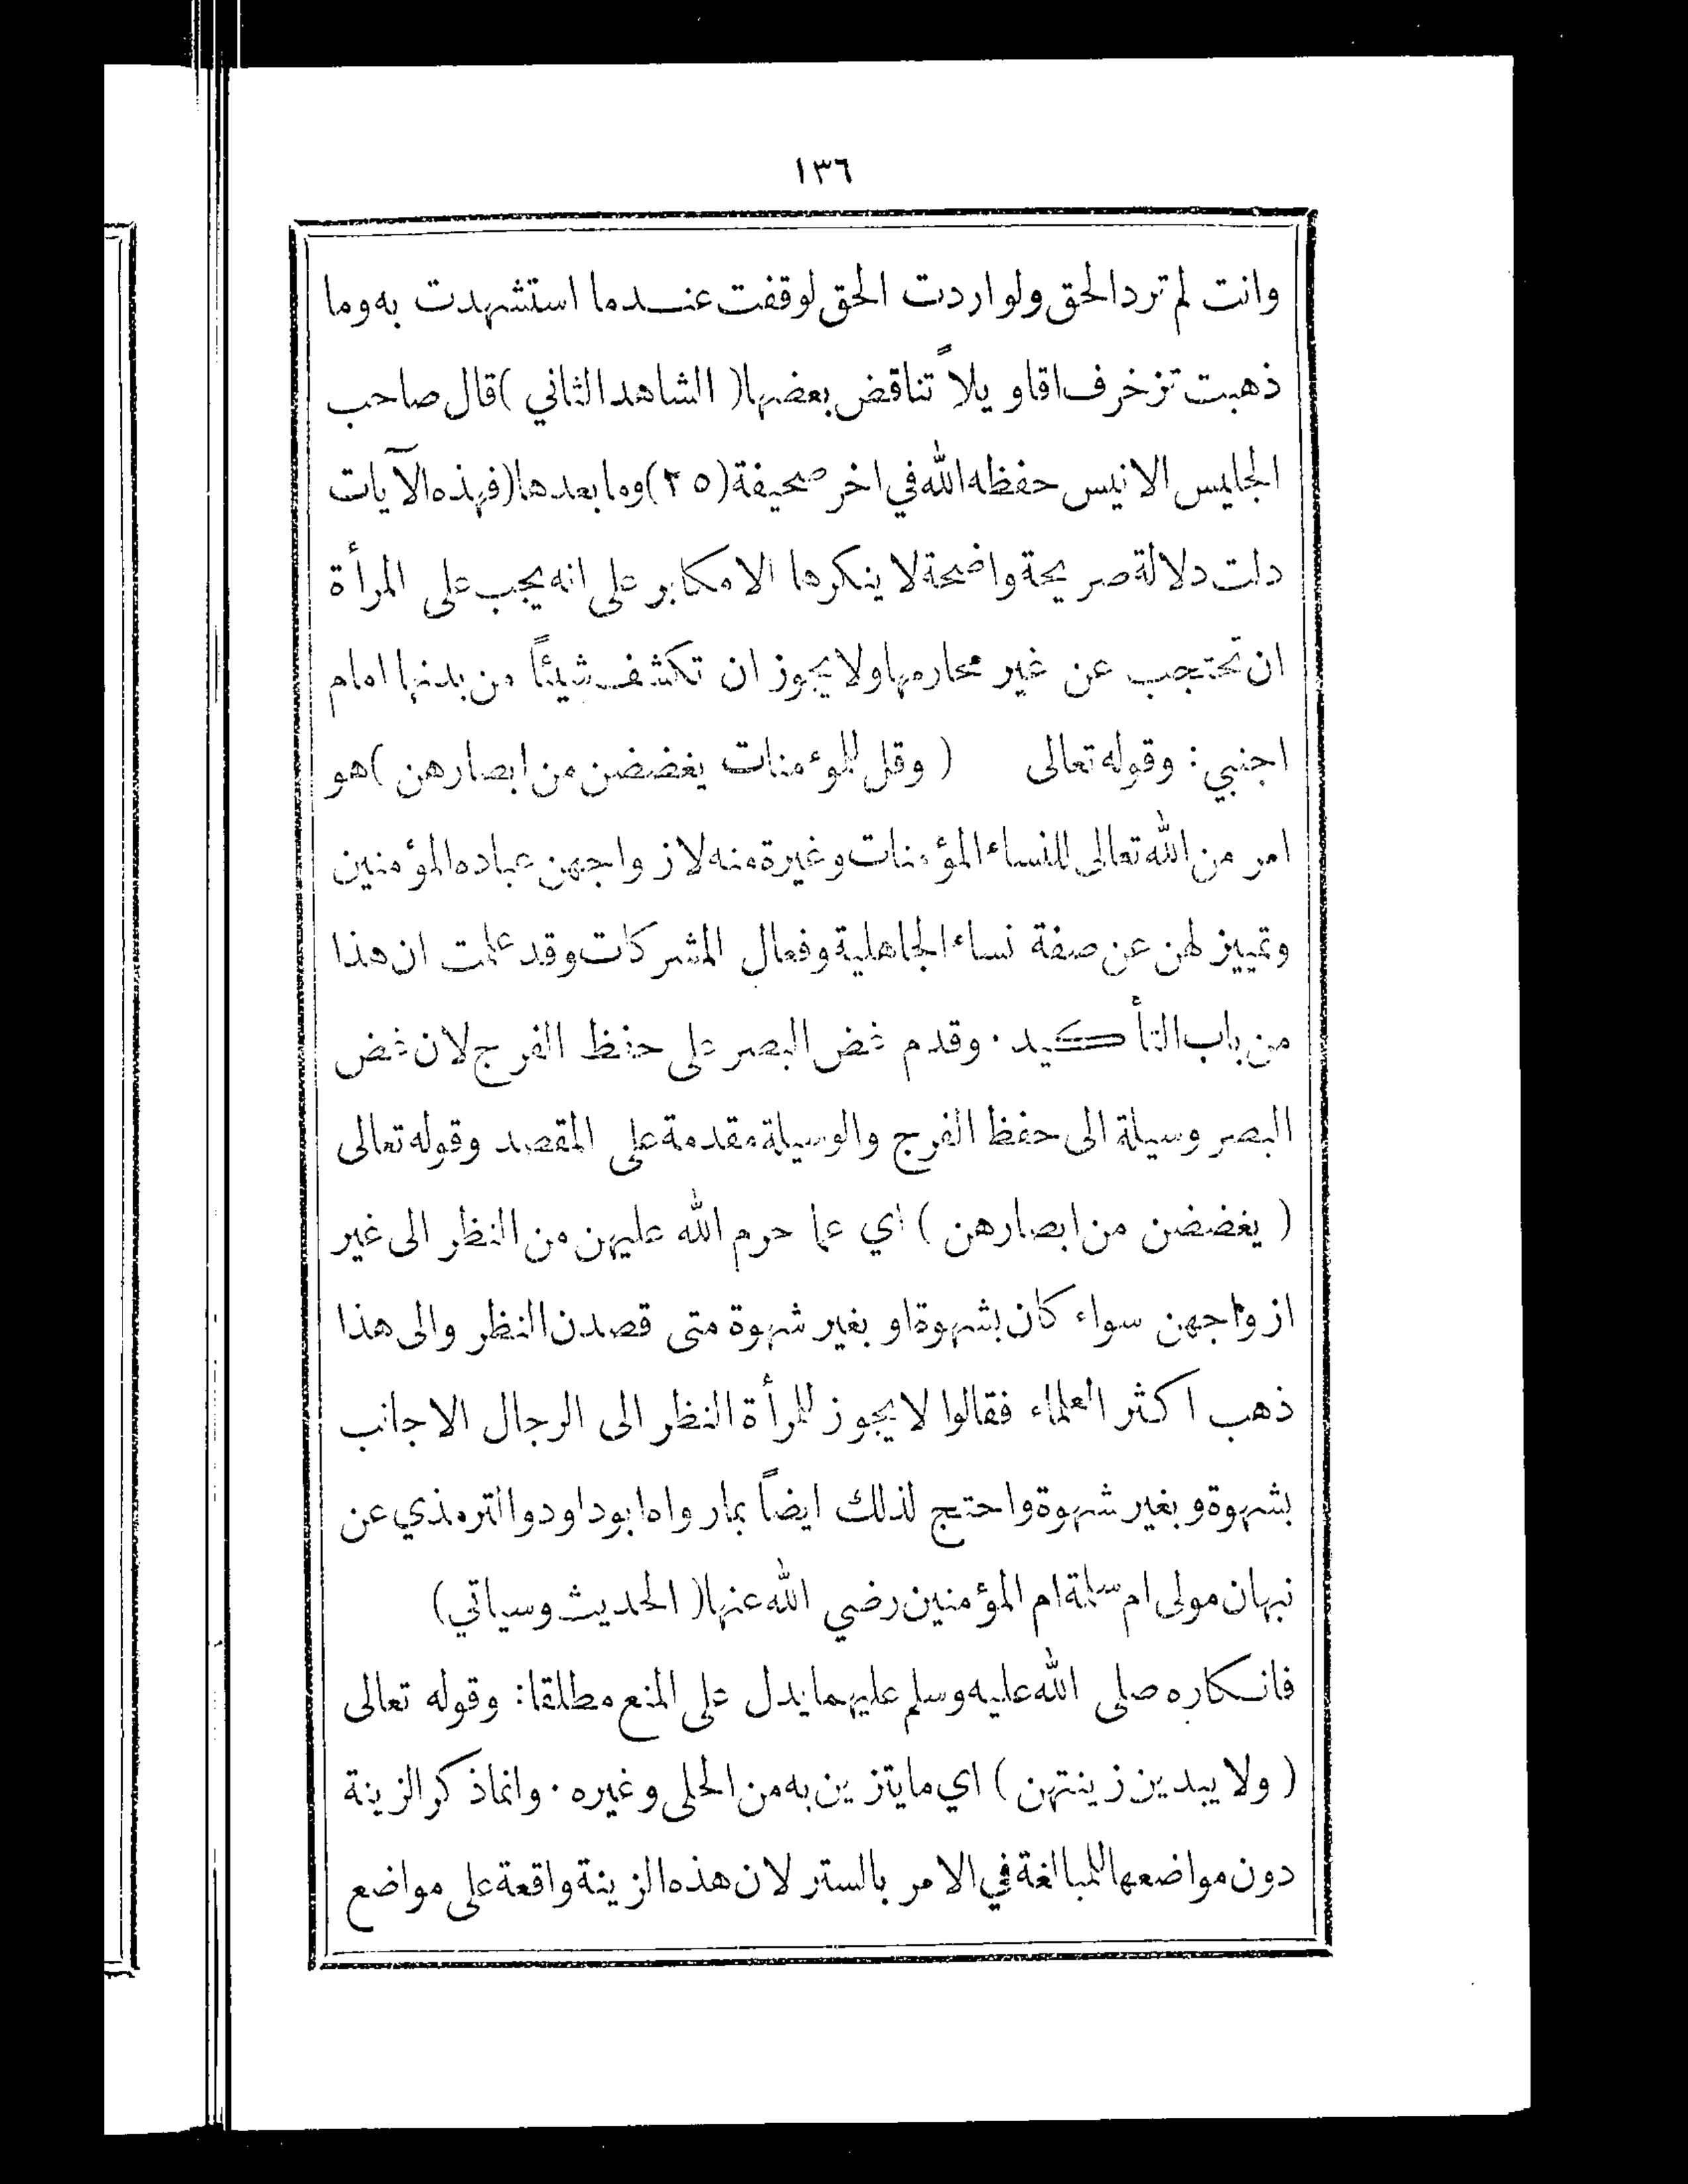 ١٣٦
وانت لم ترد الحق ولو اردت الحق لوقفت عندما استشهدت به وما
ذهبت تزخرف اقاويلاً تناقض بعضها ( الشاهد الثاني ) قال صاحب
الجليس الانيس حفظه الله في اخر صحيفة (٢٥) وما بعدها ( فهذه الآيات
دلت دلالة صريحة واضحة لا ينكرها الا مكابر على انه يجب على المرأة
ان تحتجب عن غير محارمها ولا يجوز ان تكشف شيئاً من بدنها امام
اجنبي : وقوله تعالى ( وقل للمؤمنات يغضضن من ابصارهن ) هو
امر من الله تعالى للنساء المؤمنات وغيرة منه لازواجهن عباده المؤمنين
وتمييز لهن عن صفة نساء الجاهلية وفعال المشركات وقد علمت ان هذا
من باب التأكيد . وقدم غض البصر على حفظ الفرج لان غض
البصر وسيلة الى حفظ الفرج والوسيلة مقدمة على المقصد وقوله تعالى
( يغضضن من ابصارهن ) اي عما حرم الله عليهن من النظر الى غير
ازواجهن سواء كان بشهوة او بغير شهوة متى قصدن النظر والى هذا
ذهب اكثر العلماء فقالوا لا يجوز للمرأة النظر الى الرجال الاجانب
بشهوة وبغير شهوة واحتج لذلك ايضاً بما رواه ابو داود والترمذي عن
نبهان مولى ام سلمة ام المؤمنين رضي الله عنها ( الحديث وسياتي )
فانكاره صلى الله عليه وسلم عليهما يدل على المنع مطلقا : وقوله تعالى
( ولا يبدين زينتهن ) اي ما يتزين به من الحلى وغيره . وانما ذكر الزينة
دون مواضعها للمبالغة في الامر بالستر لان هذه الزينة واقعة على مواضع